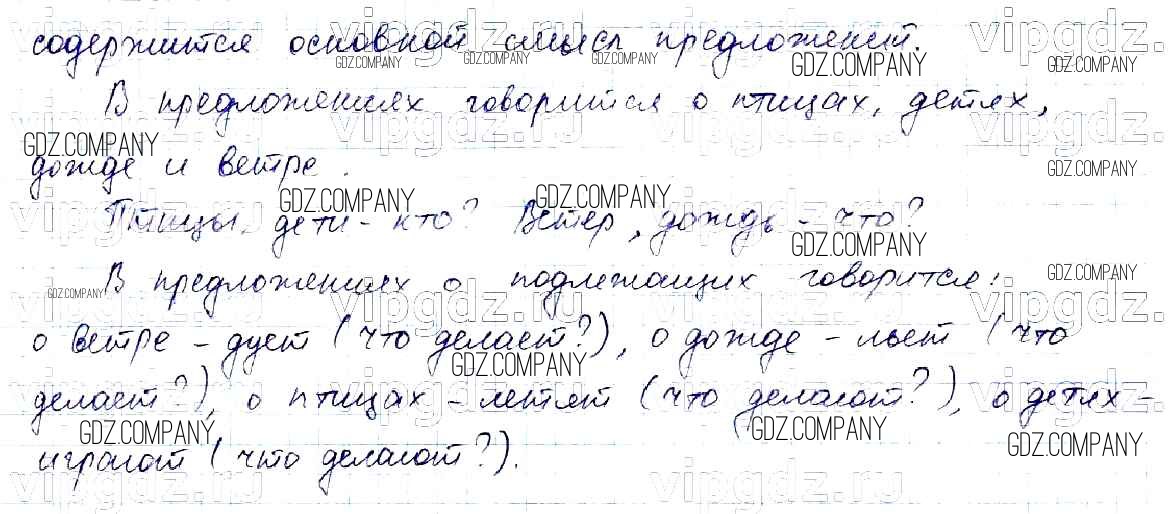 содержится основной смысл предложений.
В предложениях говорится о птицах, детях,
дожде и ветре.
Птицы, дети - кто? Ветер, дождь - что?
В предложениях о подлежащих говорится:
о ветре - дует (что делает?), о дожде - льет (что
делает?), о птицах - летят (что делают?), о детях -
играют (что делают?).
vipgdz.ru
GDZ.COMPANY